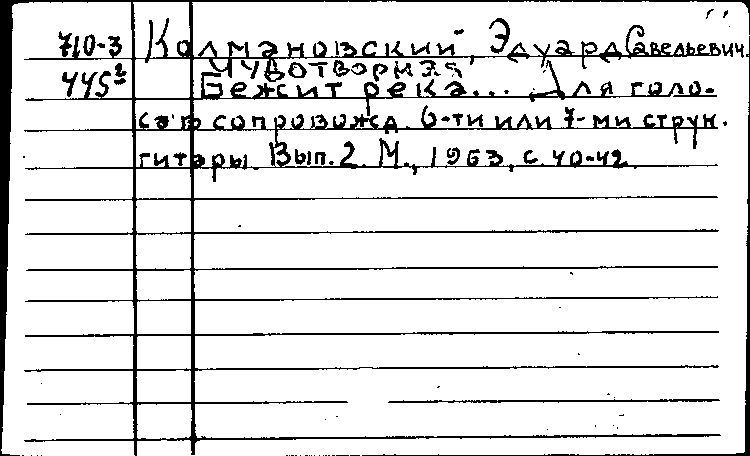 710-3 Колмановский, Эдуард Савельевич.
445² Чудотворная
Бежит река... Для голо-
са в сопровожд. 6-ти или 7-ми струн.
гитары. Вып. 2. М., 1963, с. 40-42.